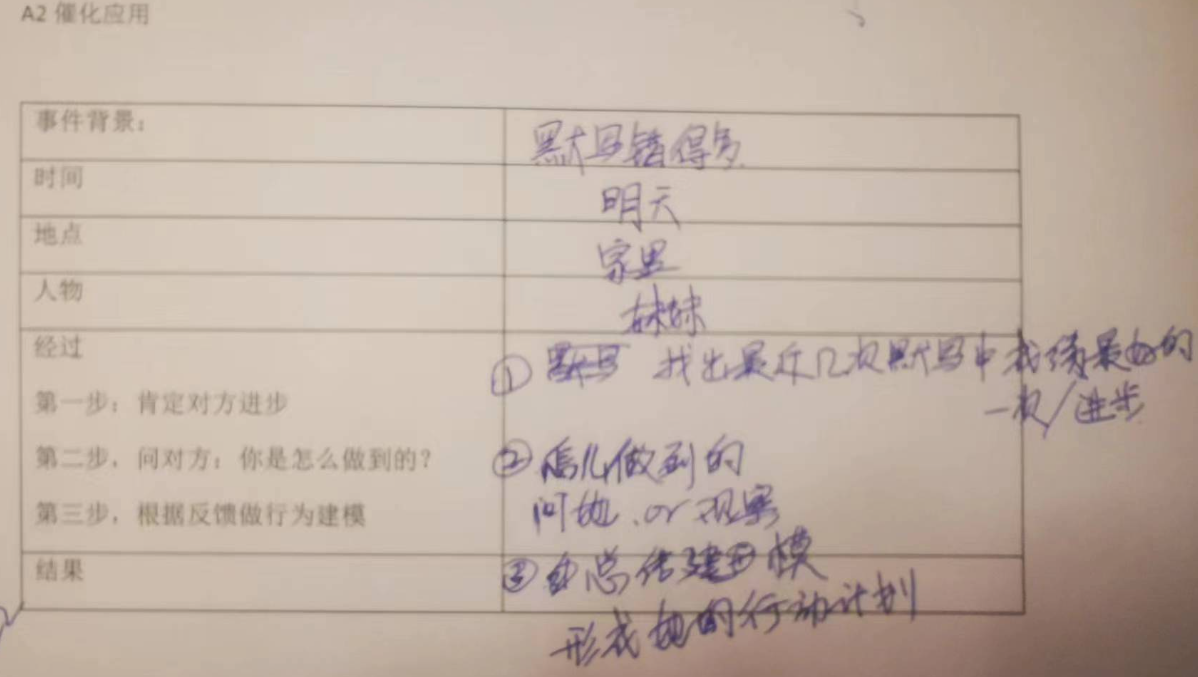 A2 催化应用
事件背景：
默写错得多
时间
明天
地点
家里
人物
妹妹
经过
① 找出最近几次默写中成绩最好的
一次/进步
第一步：肯定对方进步
第二步，问对方：你是怎么做到的？
② 怎么做到的
第三步，根据反馈做行为建模
问她、or 观察
结果
③ 总结建模
形成她的行动计划